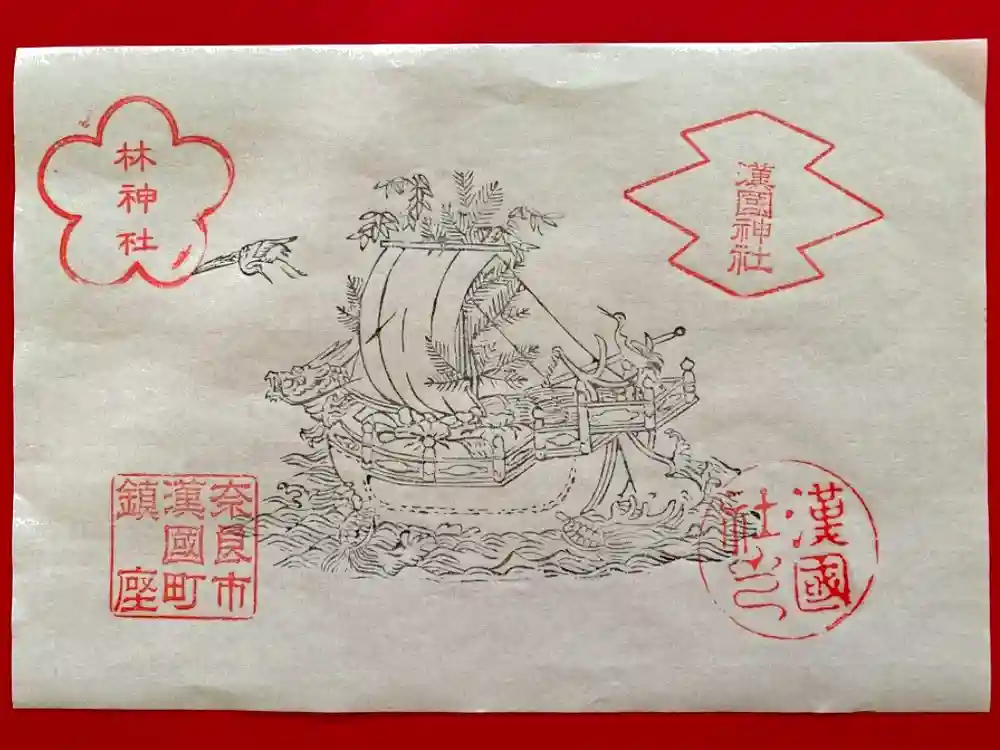 漢國神社
林神社
漢國
社印
奈良市
漢國町
鎮座